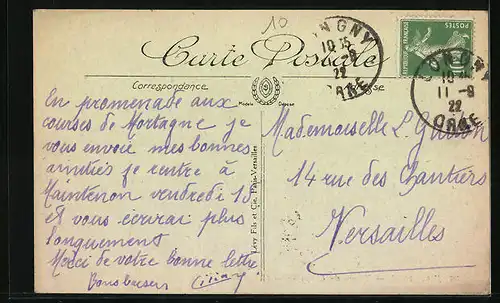 10
Carte Postale
Correspondance
Modèle Déposé
LONGNY
10 15
11 -9
22
ORNE
LONGNY
10
11 -9
22
ORNE
POSTES
En promenade aux
courses de Mortagne je
vous envoie mes bonnes
amitiés je rentre à
Maintenon vendredi 15
et vous écrirai plus
longuement
Merci de votre bonne lettre
Bons baisers
Levy Fils et Cie, Paris-Versailles
Mademoiselle L.
14 rue des Chantiers
Versailles